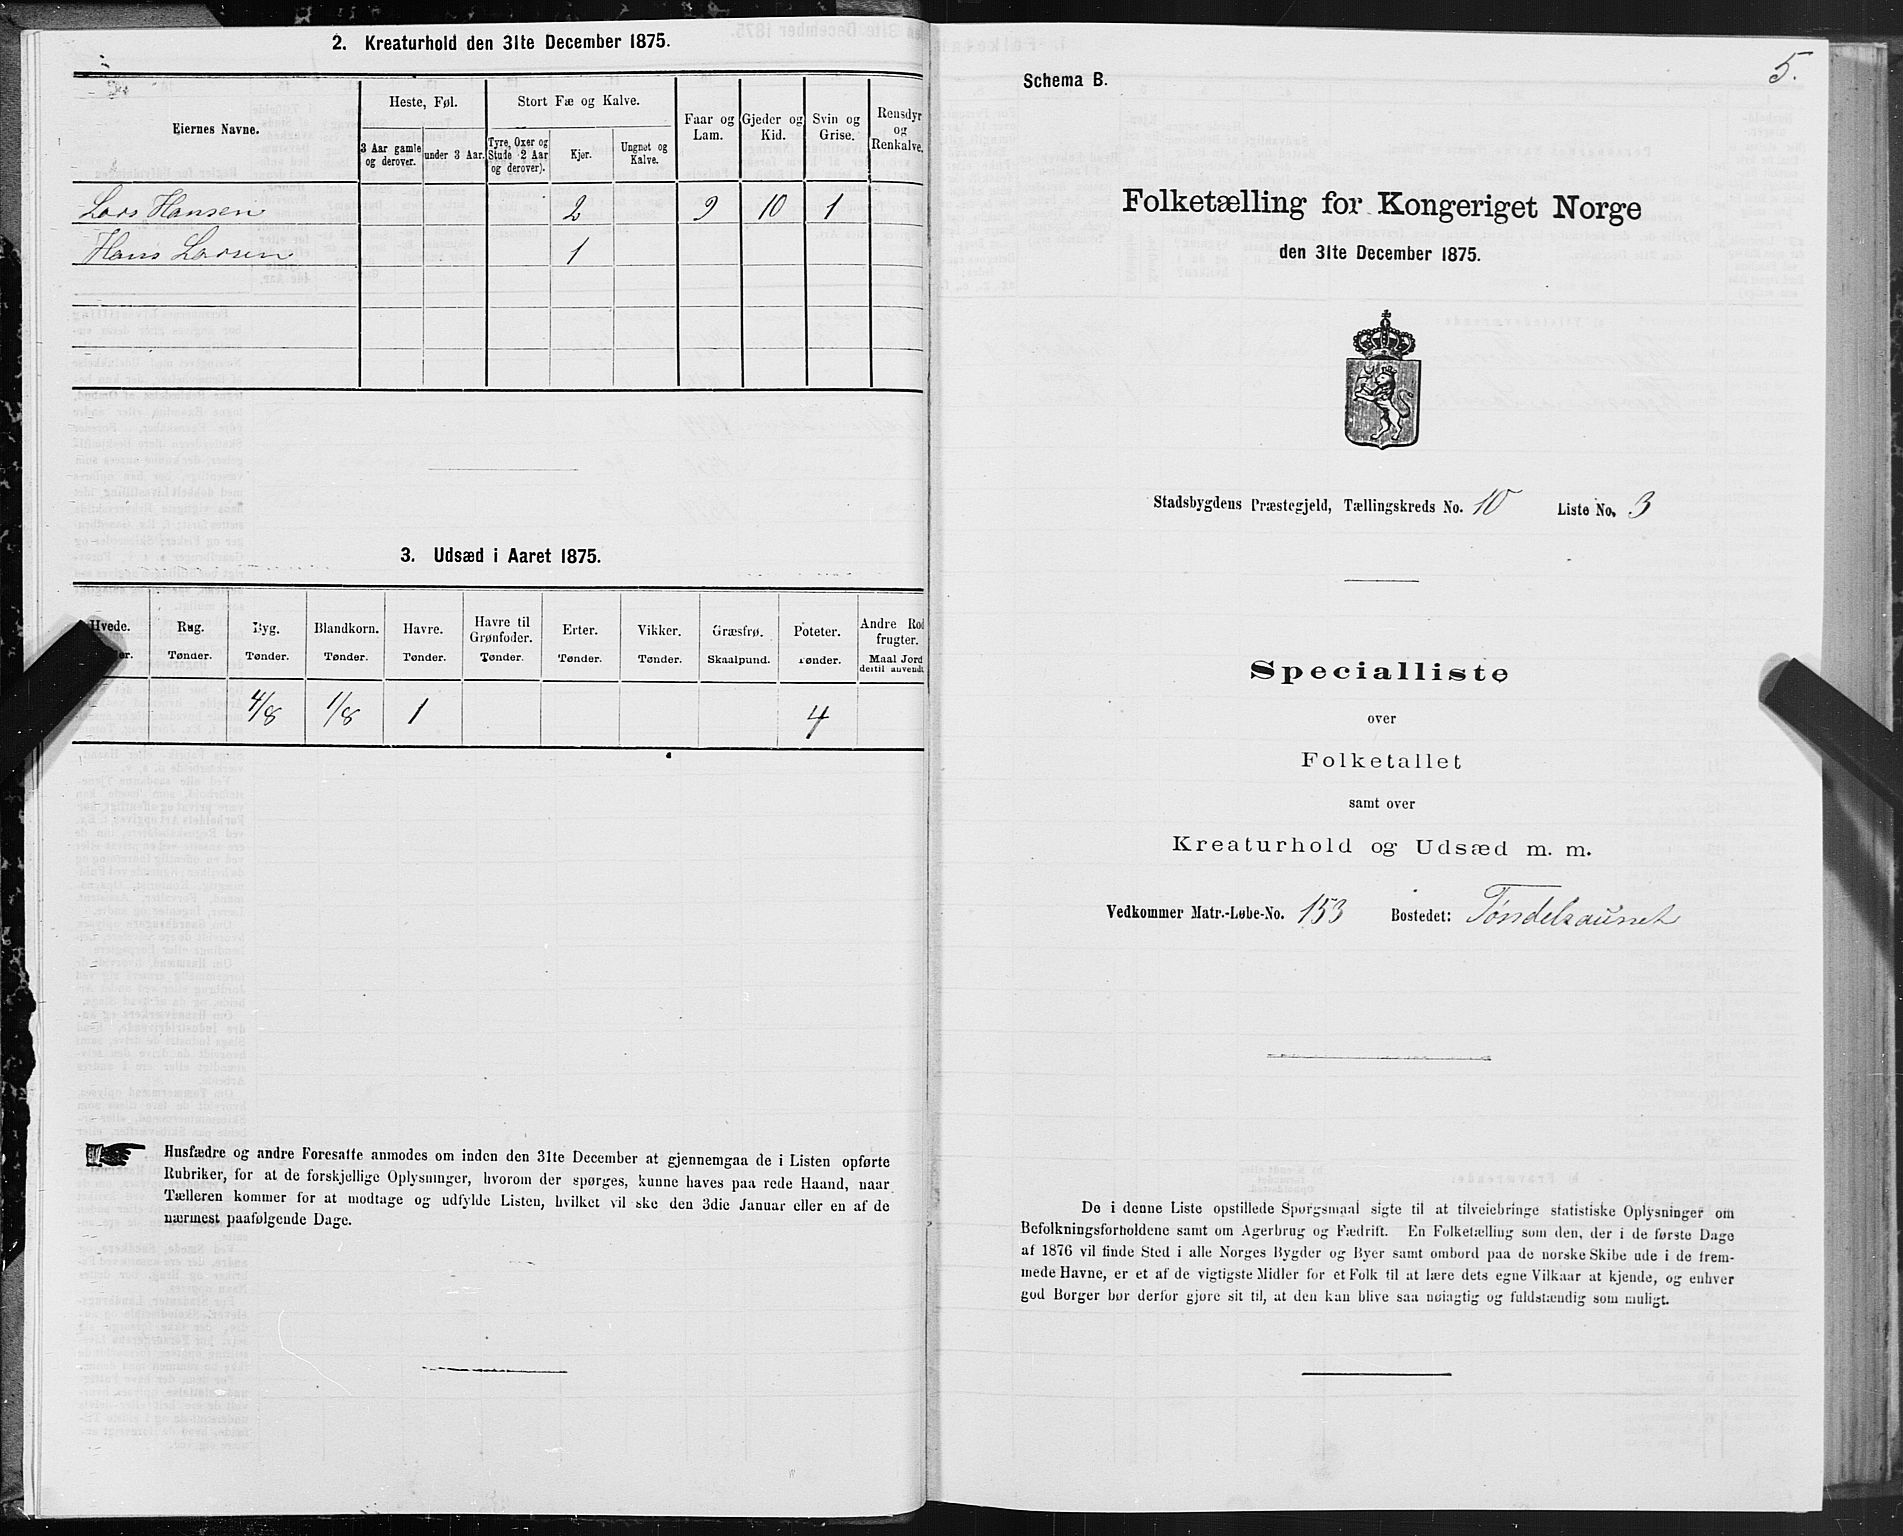 2. Kreaturhold den 31te December 1875.
Eiernes Navne.
Heste, Føl.
3 Aar gamle og derover.
under 3 Aar.
Stort Fæ og Kalve.
Tyre, Oxer og Stude 2 Aar og derover).
Kjør.
Ungnøt og Kalve.
Faar og Lam.
Gjeder og Kid.
Svin og Grise.
Rensdyr og Renkalve.
Lars Hansen 2 9 10 1
Hans Larsen 1
3. Udsæd i Aaret 1875.
Hvede. Rug. Byg. Blandkorn. Havre. Havre til Grønfoder. Erter. Vikker. Græsfrø. Poteter. Andre Rod frugter.
Tønder. Tønder. Tønder. Tønder. Tønder. Tønder. Tønder. Skaalpund. Tønder. Maal Jord dertil anvendt
4/8 1/8 1 4
Husfædre og andre Foresatte anmodes om inden den 31te December at gjennemgaa de i Listen opførte
Rubriker, for at de forskjellige Oplysninger, hvorom der spørges, kunne haves paa rede Haand, naar
Tælleren kommer for at modtage og udfylde Listen, hvilket vil ske den 3die Januar eller en af de
nærmest paafølgende Dage.
5.
Schema B.
Folketælling for Kongeriget Norge
den 31te December 1875.
Stadsbygdens Præstegjeld, Tællingskreds No. 10 Liste No. 3
Specialliste
over
Folketallet
samt over
Kreaturhold og Udsæd m. m.
Vedkommer Matr.-Løbe-No. 153 Bostedet: Tøndelraunet
De i denne Liste opstillede Spørgsmaal sigte til at tilveiebringe statistiske Oplysninger om
Befolkningsforholdene samt om Agerbrug og Fædrift. En Folketælling som den, der i de første Dage
af 1876 vil finde Sted i alle Norges Bygder og Byer samt ombord paa de norske Skibe ude i de frem-
mede Havne, er et af de vigtigste Midler for et Folk til at lære dets egne Vilkaar at kjende, og enhver
god Borger bør derfor gjøre sit til, at den kan blive saa nøiagtig og fuldstændig som muligt.